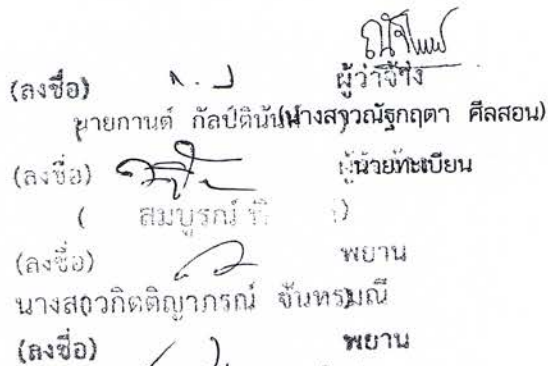 (ลงชื่อ) ผู้ว่าจ้าง
นายกานต์ กัลป์ตินันท์ (นางสาวณัฐกฤตา ศีลสอน)
(ลงชื่อ) นายทะเบียน
( สมบูรณ์ )
(ลงชื่อ) พยาน
นางสาวกิตติญาภรณ์ จันทรมณี
(ลงชื่อ) พยาน